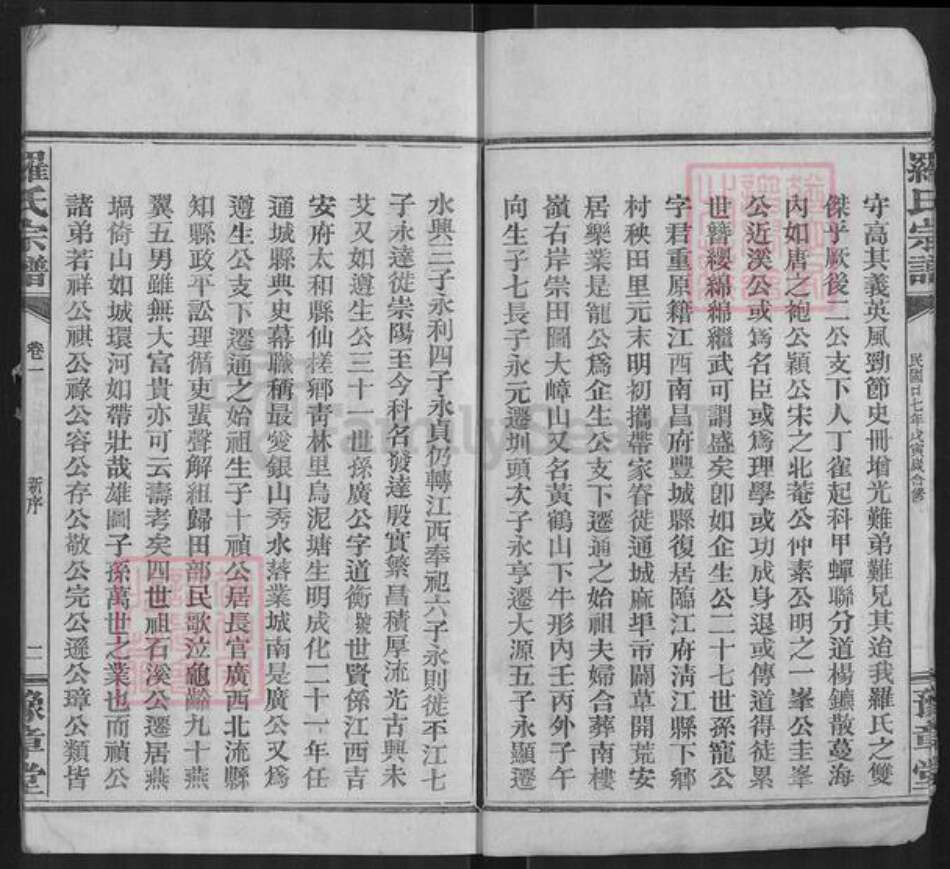 羅氏宗譜
民國廿七年戊寅歲合修
豫章堂
守高其義英風勁節史冊增光難弟難兄其迨我羅氏之雙
傑乎厥後二公支下人丁雀起科甲蟬聯分道楊鑣散蔓海
內如唐之袍公穎公宋之北菴公仲素公明之一峯公圭峯
公近溪公或爲名臣或爲理學或功成身退或傳道得徒累
世簪纓綿綿繼武可謂盛矣卽如企生公二十七世孫寵公
字君重原籍江西南昌府豐城縣復居臨江府淸江縣下鄉
村秧田里元末明初攜帶家眷徙通城麻垏市闢草開荒安
居樂業是寵公爲企生公支下遷通之始祖夫婦合葬南樓
嶺右岸崇田圖大嶂山又名黃鶴山下牛形內壬丙外子午
向生子七長子永元遷圳頭次子永亨遷大源五子永顯遷
水興三子永利四子永貞仍轉江西奉祀六子永則徙平江七
子永達徙崇陽至今科名發達殷實繁昌積厚流光古興未
艾又如遵生公三十一世孫廣公字道衡號世賢係江西吉
安府太和縣仙槎鄉靑林里烏泥塘生明成化二十一年任
通城縣典史幕職稱最愛銀山秀水落業城南是廣公又爲
遵生公支下遷通之始祖生子十禎公居長官廣西北流縣
知縣政平訟理循吏蜚聲解組歸田部民歌泣龜齡九十燕
翼五男雖無大富貴亦可云壽考矣四世祖石溪公遷居燕
塥倚山如城環河如帶壯哉雄圖子孫萬世之業也而禎公
諸弟若祥公祺公祿公容公存公敬公完公遜公璋公類皆
羅氏宗譜
卷一
新序
二
豫章堂